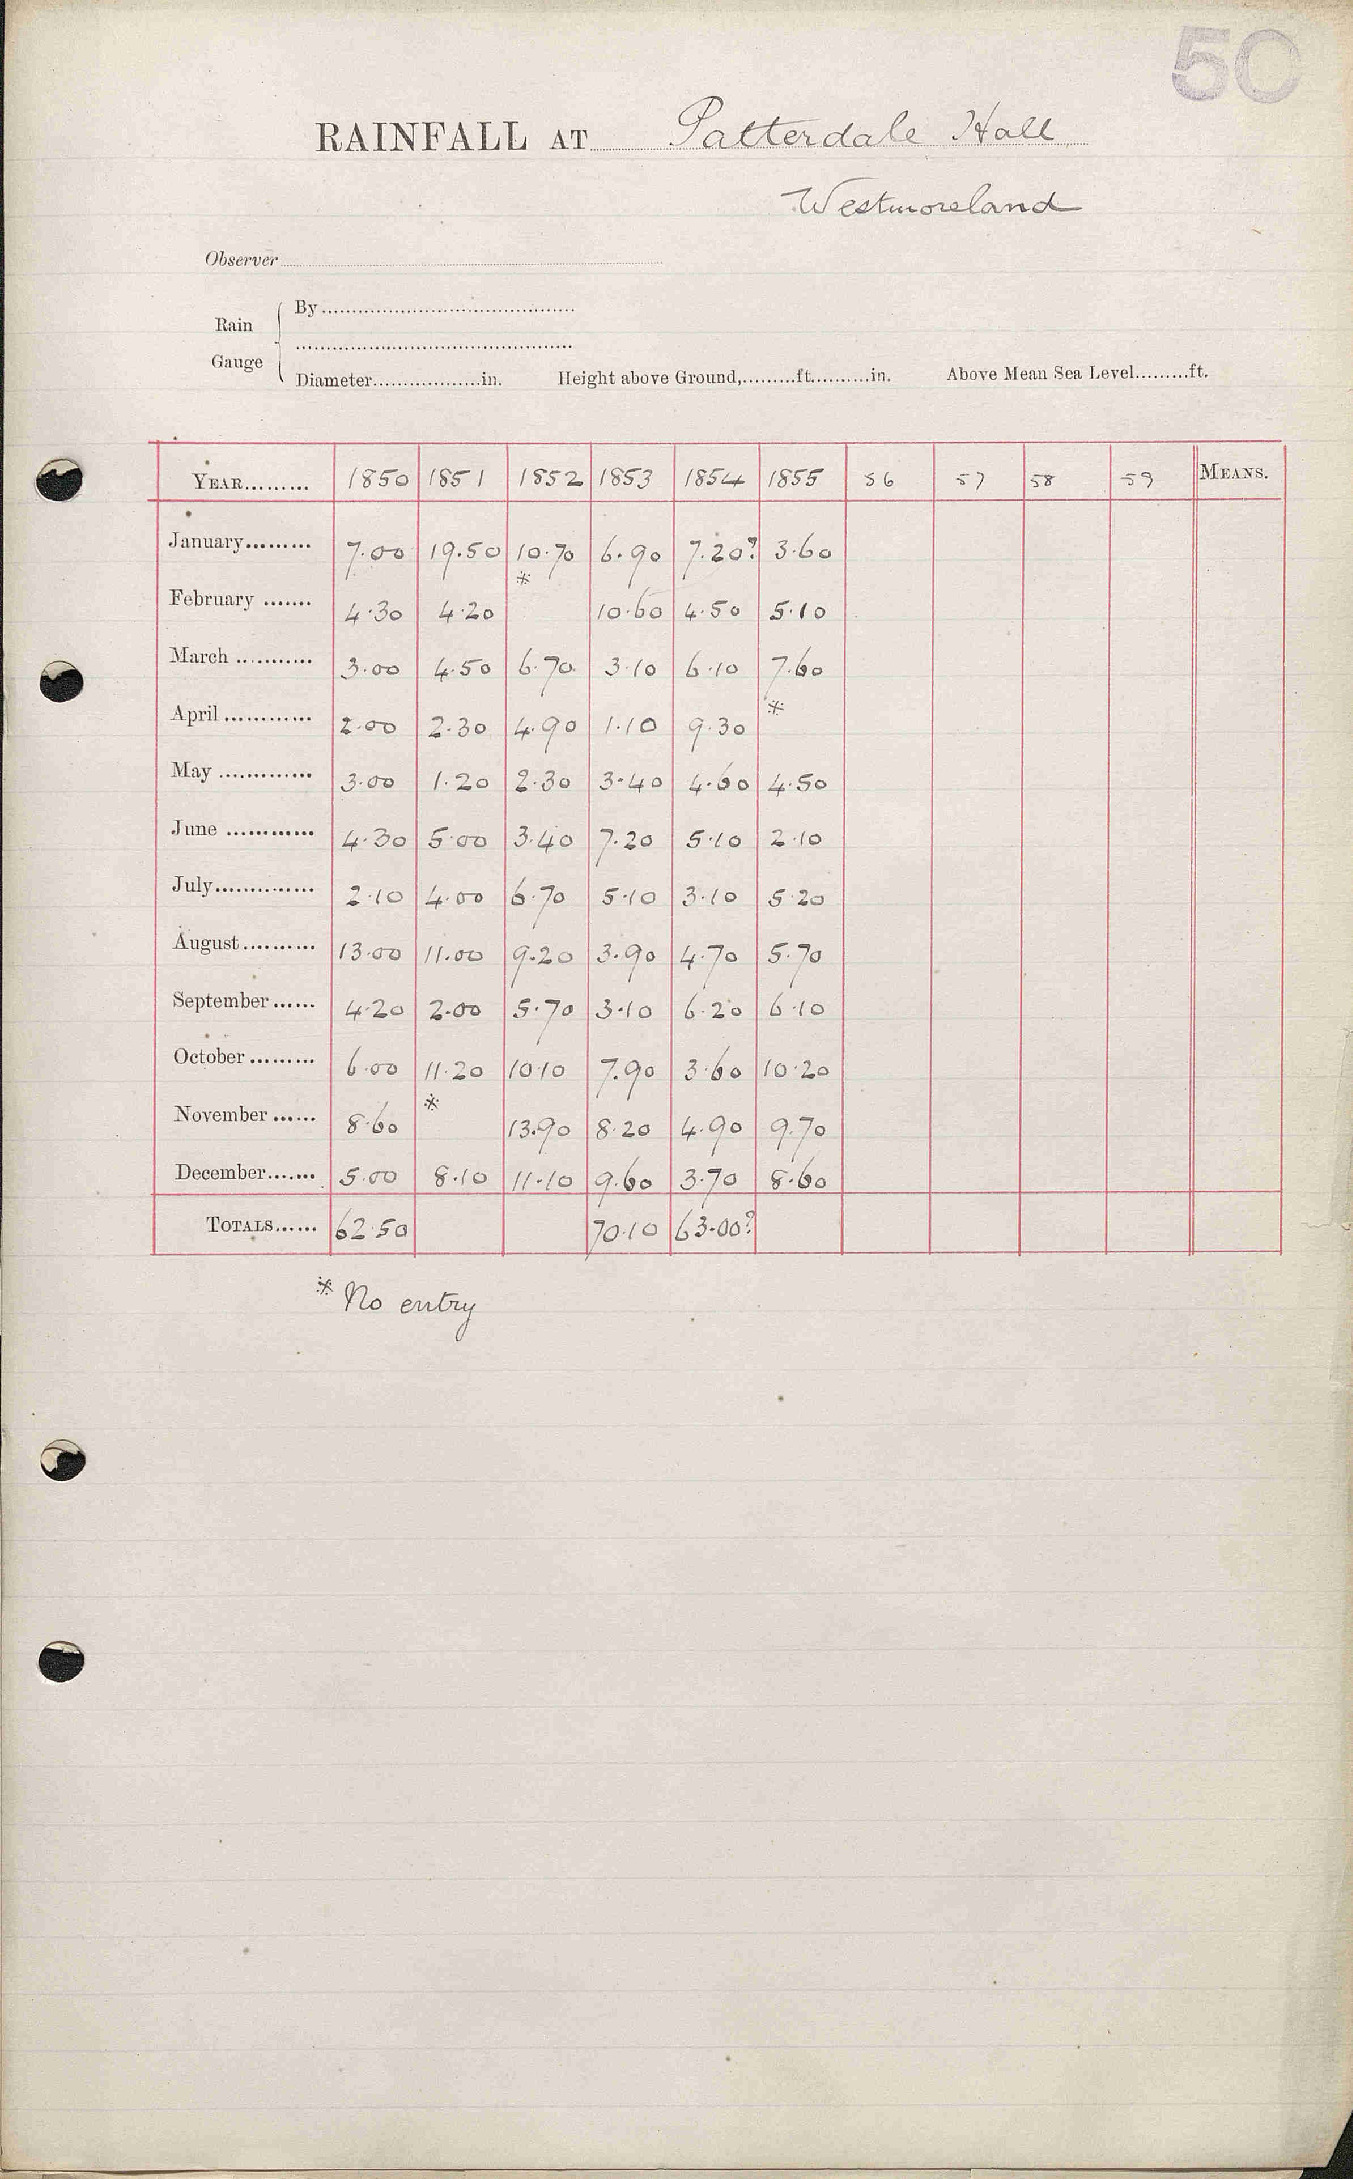 50
RAINFALL AT Patterdale Hall
Westmoreland
Observer
Rain Gauge { By
Diameter in. Height above Ground, ft. in. Above Mean Sea Level ft.
YEAR 1850 1851 1852 1853 1854 1855 56 57 58 59 MEANS.
January 7.00 19.50 10.70 6.90 7.20? 3.60
February 4.30 4.20 * 10.60 4.50 5.10
March 3.00 4.50 6.70 3.10 6.10 7.60
April 2.00 2.30 4.90 1.10 9.30 *
May 3.00 1.20 2.30 3.40 4.60 4.50
June 4.30 5.00 3.40 7.20 5.10 2.10
July 2.10 4.00 6.70 5.10 3.10 5.20
August 13.00 11.00 9.20 3.90 4.70 5.70
September 4.20 2.00 5.70 3.10 6.20 6.10
October 6.00 11.20 10.10 7.90 3.60 10.20
November 8.60 * 13.90 8.20 4.90 9.70
December 5.00 8.10 11.10 9.60 3.70 8.60
TOTALS 62.50 70.10 63.00?
* No entry